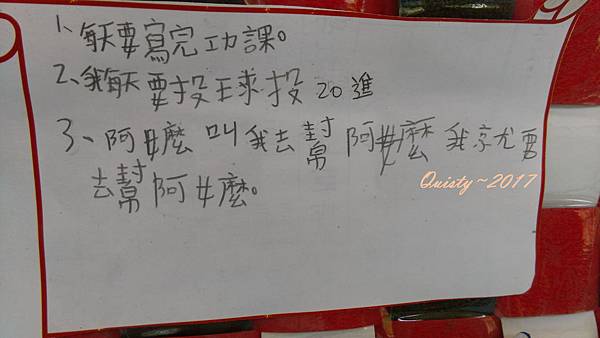 1、每天要寫完功課。
2、我每天要投球投20進
3、阿嬤叫我去幫阿嬤我就要
去幫阿嬤。
Quisty~2017